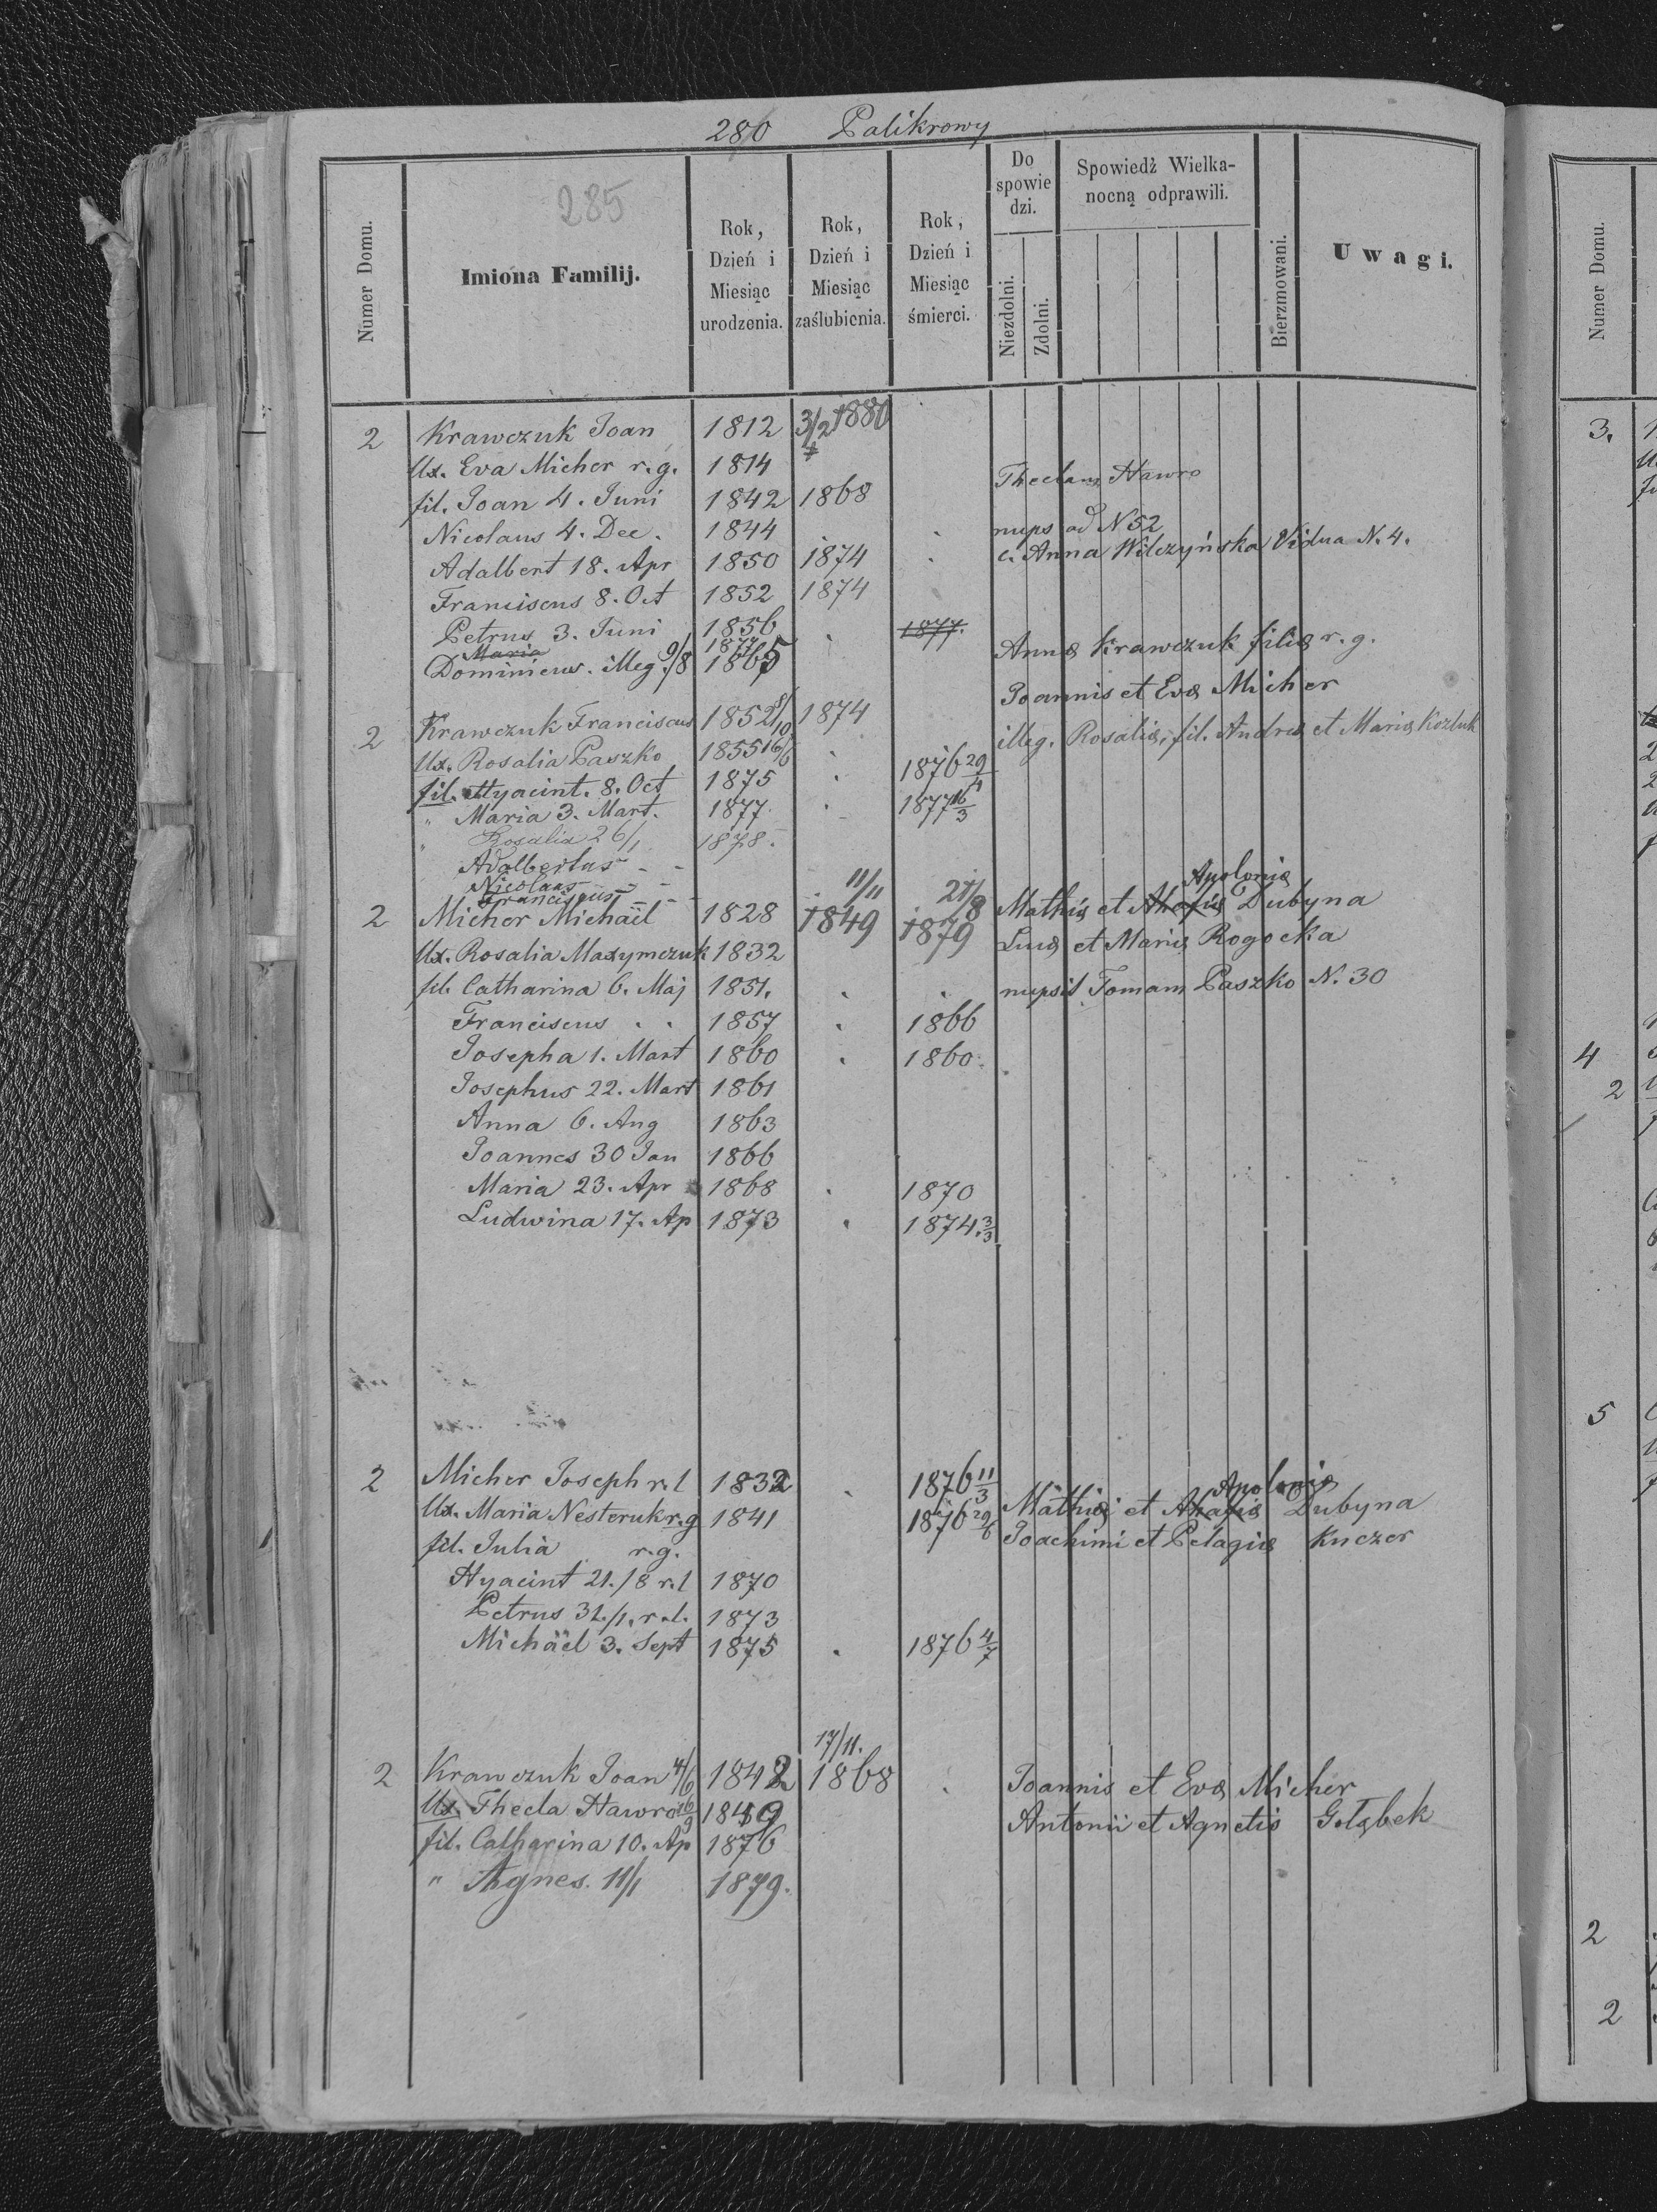 280 Palikrowy
285
Numer Domu.
Imiona Familij.
Rok, Dzień i Miesiąc urodzenia.
Rok, Dzień i Miesiąc zaślubienia.
Rok, Dzień i Miesiąc śmierci.
Do spowiedzi.
Niezdolni.
Zdolni.
Spowiedź Wielkanocną odprawili.
Bierzmowani.
Uwagi.
2 Krawczuk Joan 1812 3/2 1880
Ux. Eva Micher r.g. 1814
fil. Joan 4. Juni 1842 1868 Theclam Hawro
Nicolaus 4. Dec. 1844 nups ad N 52
Adalbert 18. Apr 1850 1874 c. Anna Wilczyńska Vidua N. 4.
Franciscus 8. Oct 1852 1874
Petrus 3. Juni 1856
Maria 1877 1877.
Dominicus. illeg. 9/8 1865 Annæ Krawczuk filiæ r.g.
Joannis et Evæ Micher
2 Krawczuk Franciscus 1852 8/10 1874
Ux. Rosalia Paszko 1855 16/6 illeg. Rosaliæ, fil. Andreæ et Mariæ Kozluk
fil. Hyacint. 8. Oct 1875 1876 29/4
" Maria 3. Mart. 1877 1877 16/3
" Rosalia 26/1 1878.
Adalbertus - -
Nicolaus - -
Franciscus - -
2 Micher Michaël 1828 11/11 1849 21/8 1879 Mathiæ et Ahafiæ Apoloniæ Dubyna
Ux. Rosalia Maxymczuk 1832 Lucæ et Mariæ Rogocka
fil. Catharina 6. Maj 1851. nupsit Tomam Paszko N. 30
Franciscus . . 1857 1866
Josepha 1. Mart 1860 1860.
Josephus 22. Mart 1861
Anna 6. Aug 1863
Joannes 30 Jan 1866
Maria 23. Apr 1868 1870
Ludwina 17. Ap 1873 1874. 3/3
2 Micher Joseph r.l 1832 1876 11/3 Mathiæ et Ahafiæ Apoloniæ Dubyna
Ux. Maria Nesteruk r.g 1841 1876 29/6 Joachimi et Pelagiæ Kuczer
fil. Julia r.g.
Hyacint 21./8 r.l 1870
Petrus 31./1. r.l. 1873
Michäel 3. Sept 1875 1876 4/7
2 Krawczuk Joan 4/6 1842 17/11. 1868 Joannis et Evæ Micher
Ux. Thecla Hawro 1849 Antonii et Agnetis Gołąbek
fil. Catharina 10. Ap 1876
" Agnes. 11/1 1879.
Numer Domu.
3.
4
2
5
2
2